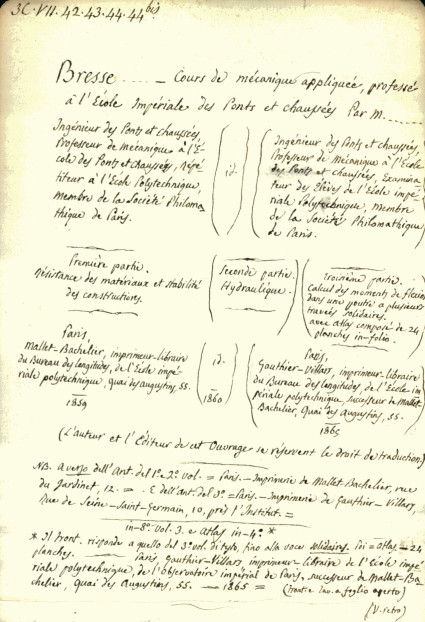 3C.VII.42.43.44.44bis
Bresse ..... — Cours de mécanique appliquée, professé
à l'École Impériale des Ponts et chaussées Par M.....
Ingénieur des Ponts et chaussées,
Professeur de Mécanique à l'É-
cole des Ponts et chaussées, Répé-
titeur à l'École Polytechnique,
Membre de la Société Philoma
thique de Paris.
id.
Ingénieur des Ponts et chaussées,
Professeur de Mécanique à l'École
des Ponts et chaussées, Examina-
teur des Élèves de l'École impé-
riale Polytechnique, Membre
de la Société Philomathique
de Paris.
Première partie.
Résistance des matériaux et stabilité
des constructions.
Seconde partie.
Hydraulique.
Troisième partie.
Calcul des moments de flexion
dans une poutre à plusieurs
travées solidaires.
avec atlas composé de 24
planches in-folio.
Paris,
Mallet-Bachelier, imprimeur-libraire
du Bureau des longitudes, de l'École impé-
riale polytechnique, quai des augustins, 55.
1859
id.
1860
Paris,
Gauthier-Villars, imprimeur-libraire
du Bureau des longitudes, de l'École im-
périale polytechnique, successeur de Mallet-
Bachelier, Quai des Augustins, 55.
1865
(L'auteur et l'Éditeur de cet Ouvrage se réservent le droit de traduction)
NB. A verso dell'Ant. del 1º e 2º vol. = Paris. — Imprimerie de Mallet-Bachelier, rue
du Jardinet, 12. = . E dell'ant. del 3º = Paris. — Imprimerie de Gauthier-Villars,
Rue de Seine-Saint-Germain, 10, près l'Institut. =
in-8º. Vol. 3. e Atlas in-4º. *
* Il front. risponde a quello del 3º vol. di testo, fino alla voce solidaires. Poi = Atlas — 24
planches. — Paris Gauthier-Villars imprimeur-libraire de l'École impé
riale polytechnique, de l'Observatoire impérial de Paris, successeur de Mallet-Ba-
chelier, Quai des Augustins, 55. — 1865 = (front. e tav. a foglio aperto)
(V. retro)